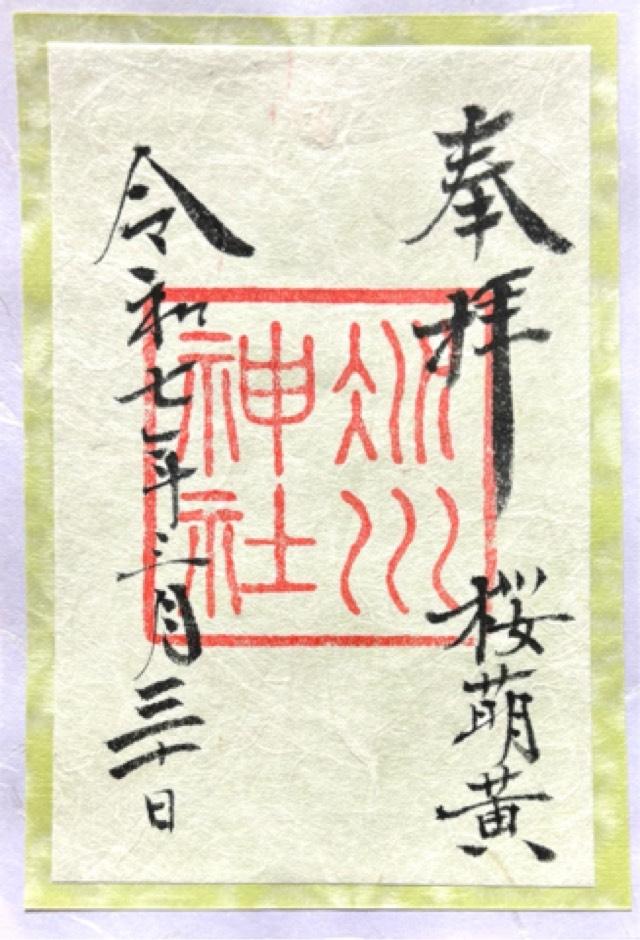 奉拝
桜萌黄
冰川
神社
令和七年三月三十日